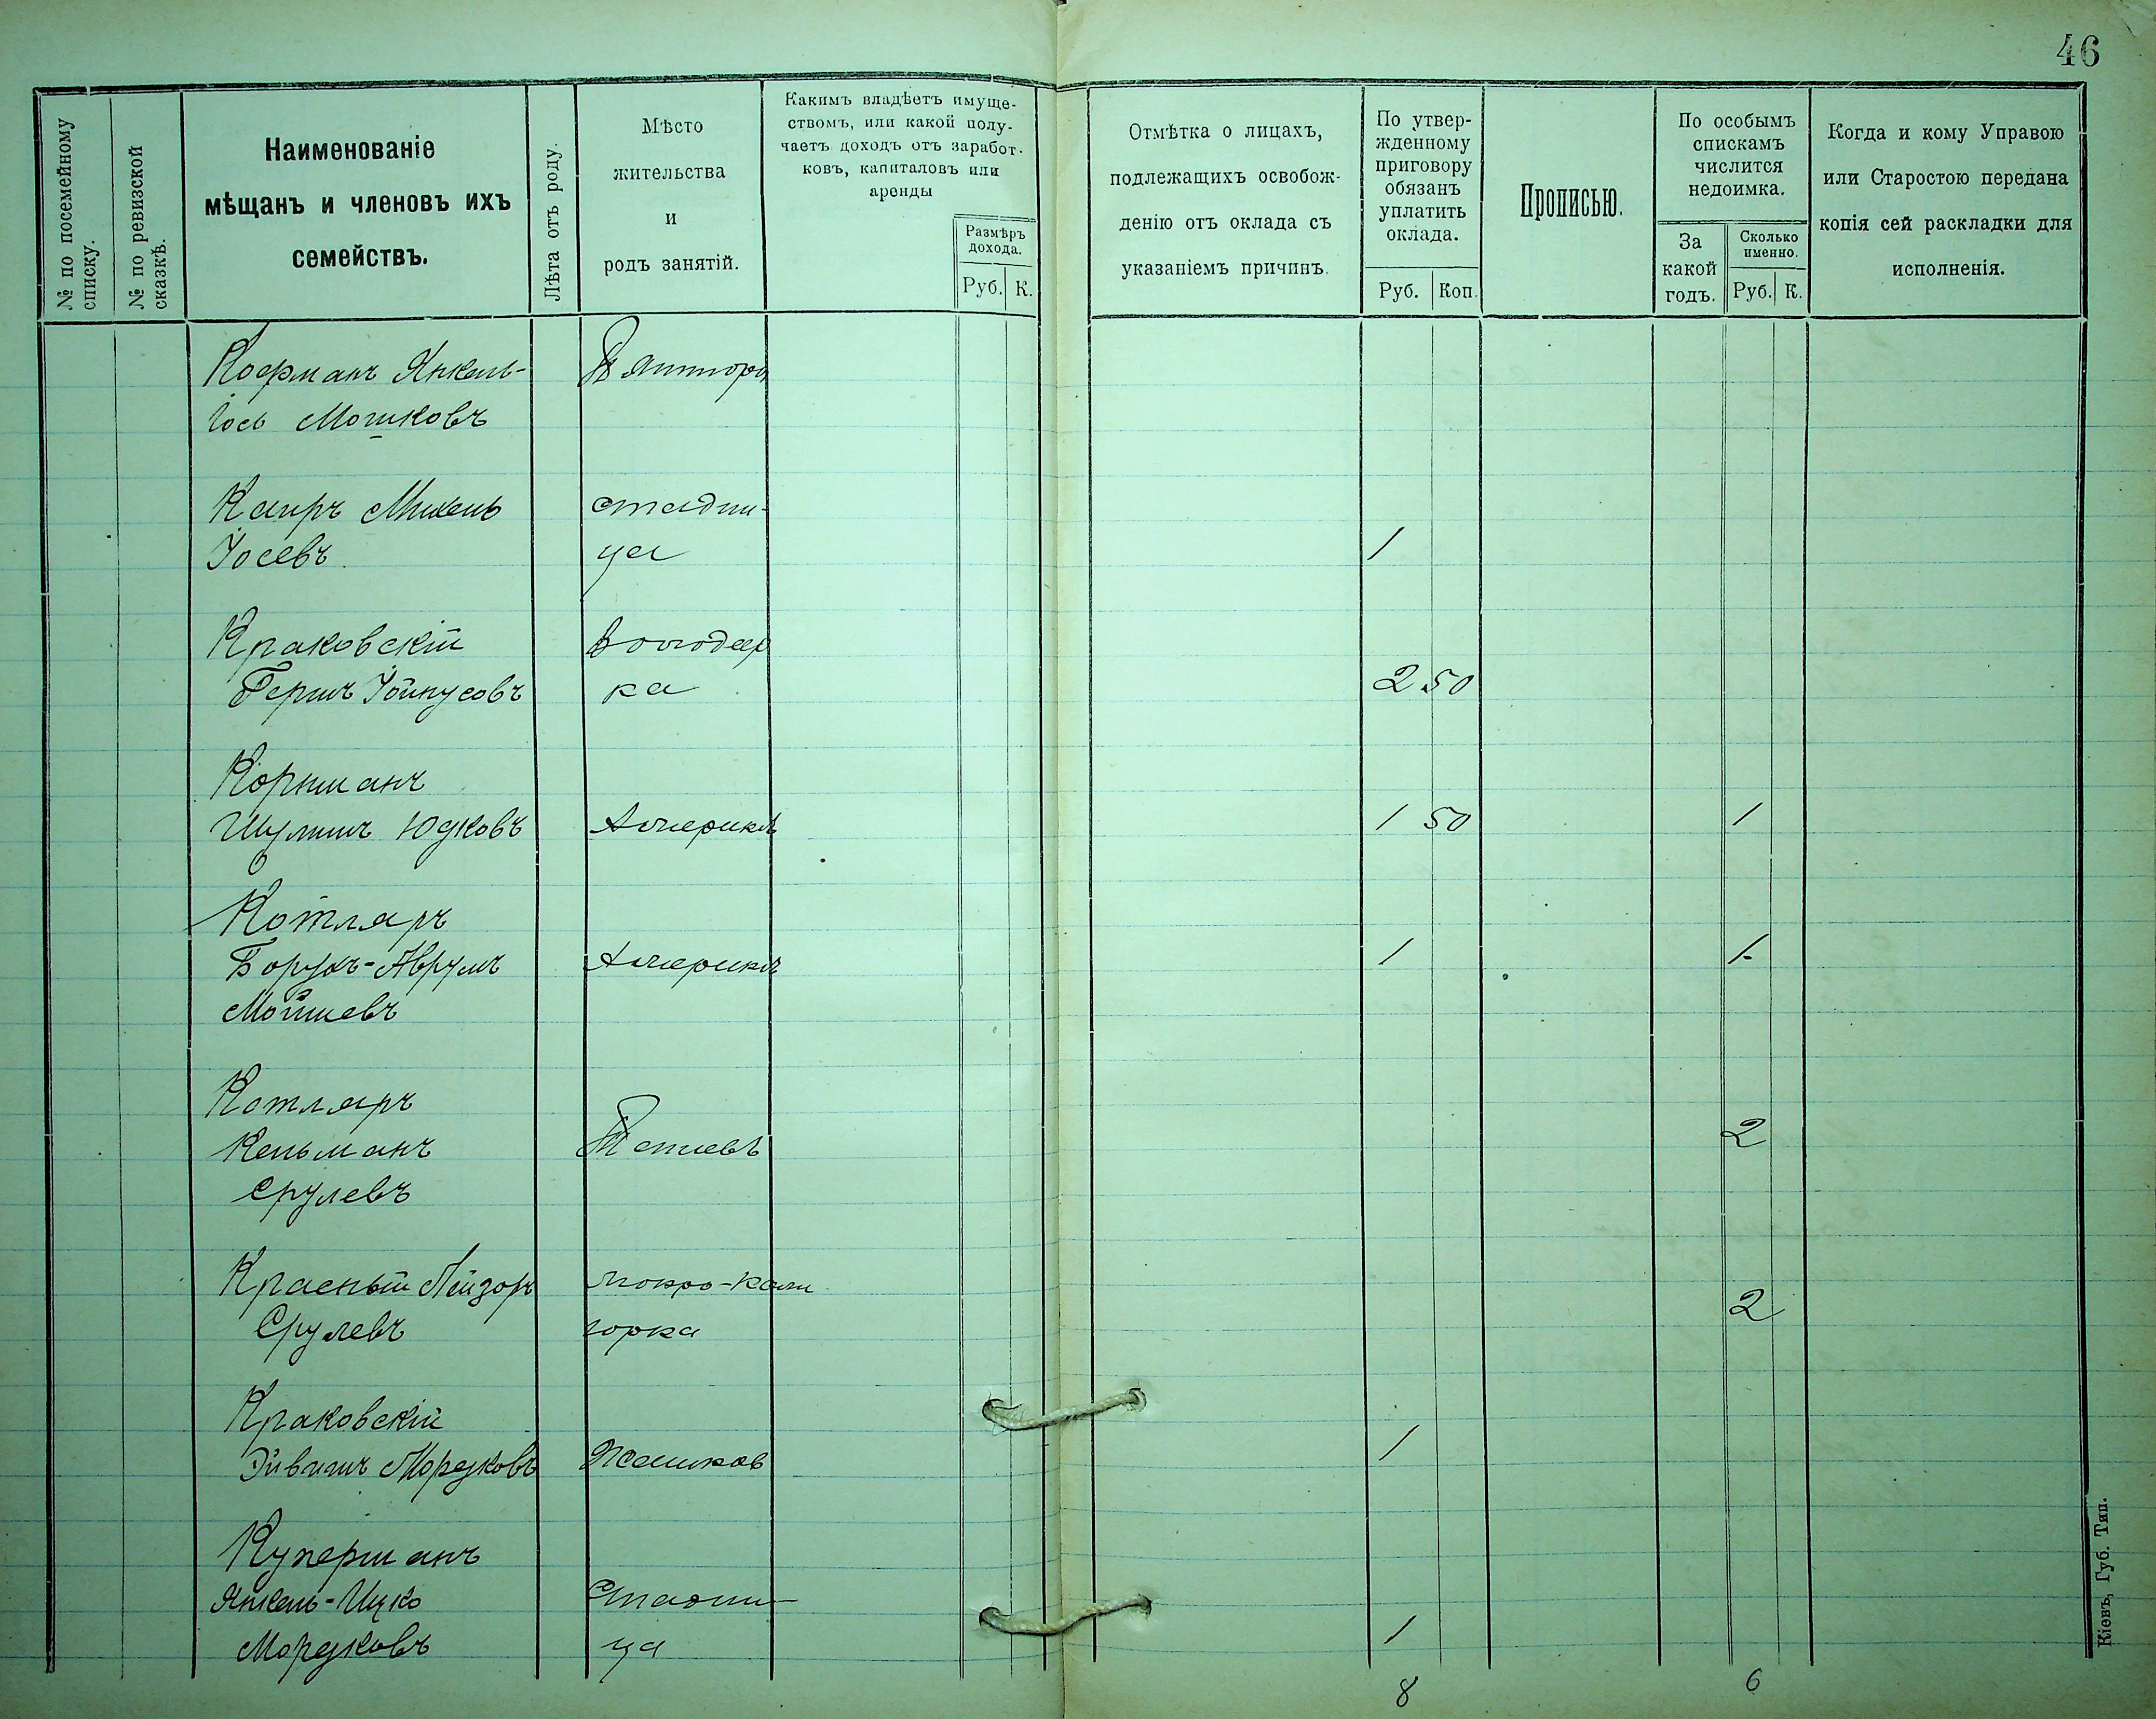 46
№ по посемейному
списку.
№ по ревизской
сказкѣ.
Наименованіе
мѣщанъ и членовъ ихъ
семействъ.
Лѣта отъ роду.
Мѣсто
жительства
и
родъ занятій.
Какимъ владѣетъ имуще-
ствомъ, или какой полу-
чаетъ доходъ отъ заработ-
ковъ, капиталовъ или
аренды
Размѣръ
дохода.
Руб. К.
Отмѣтка о лицахъ,
подлежащихъ освобож-
денію отъ оклада съ
указаніемъ причинъ.
По утвер-
жденному
приговору
обязанъ
уплатить
оклада.
Руб. Коп.
Прописью.
По особымъ
спискамъ
числится
недоимка.
За
какой
годъ.
Сколько
именно.
Руб. К.
Когда и кому Управою
или Старостою передана
копія сей раскладки для
исполненія.
Кофманъ Янкель-
Іось Мошковъ
Пятигоры
Каиръ Михель
Стадни-
Іосевъ
ца 1
Краковскій
Володар
Гершъ Іойнусовъ
ка 2 50
Коршманъ
Шулимъ Юдковъ Америкѣ 1 50 1
Котляръ
Борухъ-Аврумъ Америкѣ 1 1
Мойшевъ
Котляръ
Кельманъ Тетіевѣ 2
Срулевъ
Красный Лейзоръ Мокро-Кали
Срулевъ горка 2
Краковскій
Мордковъ Жашков 1
Куперманъ
Янкель-Ицко Стадни-
Мордковъ ца 1
8 6
Кіевъ, Губ. Тип.